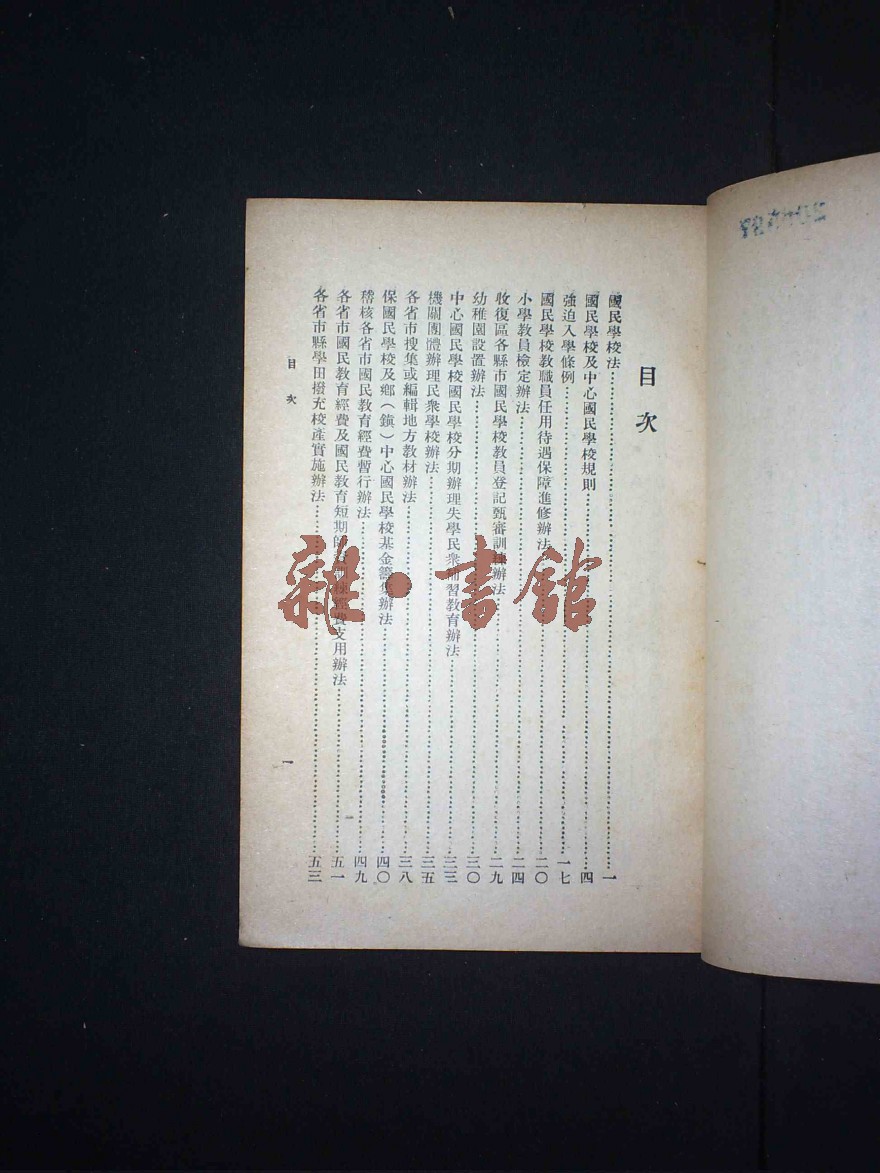 目次
國民學校法……一
國民學校及中心國民學校規則……四
強迫入學條例……一七
國民學校教職員任用待遇保障進修辦法……二〇
小學教員檢定辦法……二四
收復區各縣市國民學校教員登記甄審訓練辦法……二九
幼稚園設置辦法……三〇
中心國民學校國民學校分期辦理失學民衆補習教育辦法……三三
機關團體辦理民衆學校辦法……三五
各省市搜集或編輯地方教材辦法……三八
保國民學校及鄉(鎮)中心國民學校基金籌集辦法……四〇
稽核各省市國民教育經費暫行辦法……四九
各省市國民教育經費及國民教育短期師資訓練經費支用辦法……五一
各省市縣學田撥充校產實施辦法……五三
目次
一
雜·書館